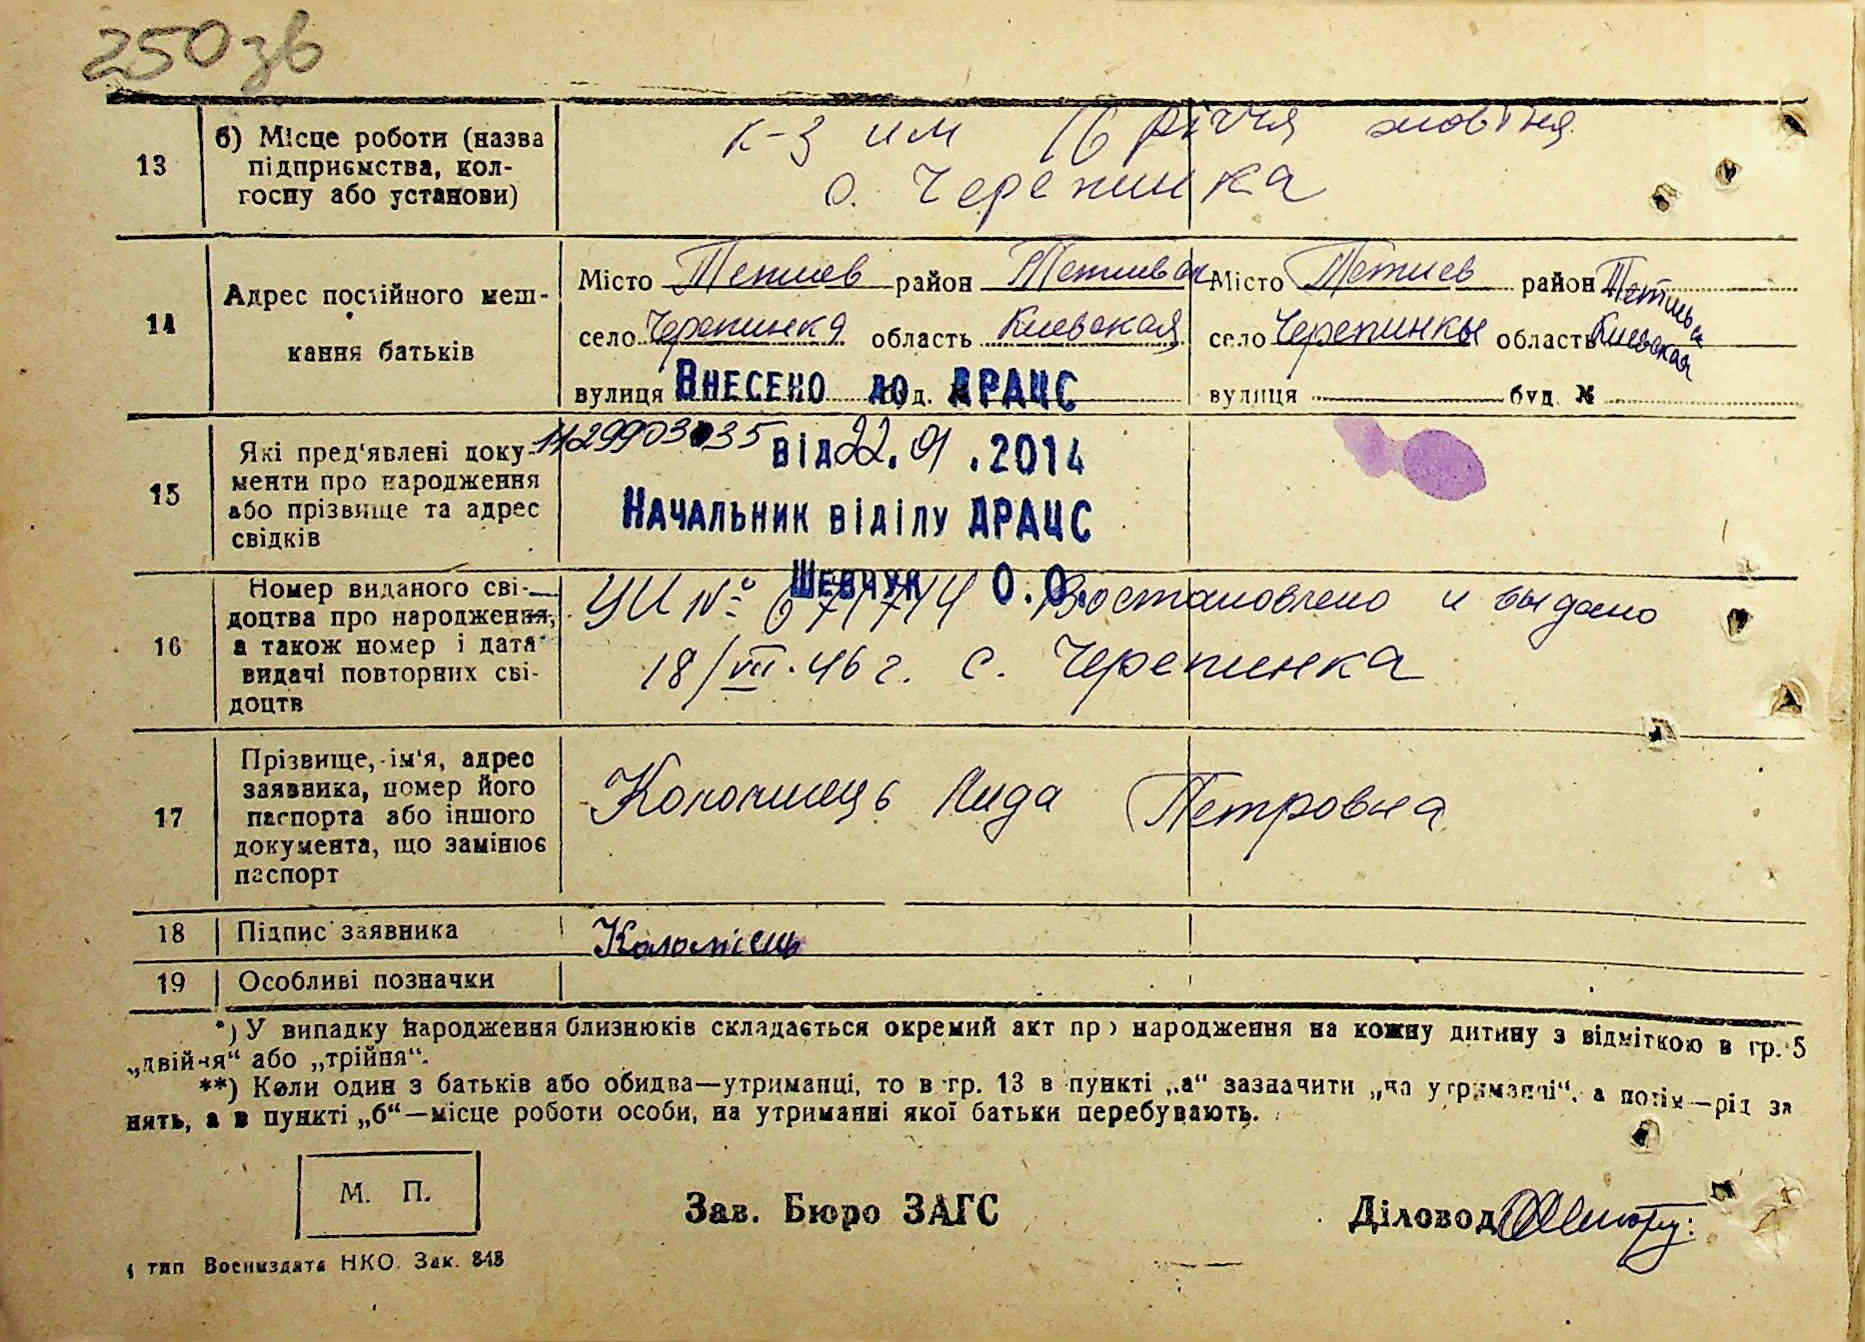 250зв
13
б) Місце роботи (назва
підприємства, кол-
госпу або установи)
к-з им 16 річчя жовтня
с. Черепинка
14
Адрес постійного меш-
кання батьків
Місто Тетиев район Тетиевск
село Черепинка область Киевская
вулиця буд. №
Місто Тетиев район Тетиевск
село Черепинкы область Киевская
вулиця буд. №
Внесено до ДРАЦС
1429903035 від 22.01.2014
Начальник віділу ДРАЦС
Шевчук О.О.
15
Які пред'явлені доку-
менти про народження
або прізвище та адрес
свідків
16
Номер виданого сві-
доцтва про народження,
а також номер і дата
видачі повторних сві-
доцтв
УИ № 671714 Востановлено и выдано
18/VII.46 г. с. Черепинка
17
Прізвище, ім'я, адрес
заявника, номер його
паспорта або іншого
документа, що замінює
паспорт
Коломиець Лида Петровна
18
Підпис заявника
Коломіець
19
Особливі позначки
*) У випадку народження близнюків складається окремий акт про народження на кожну дитину з відміткою в гр. 5
„двійня“ або „трійня“.
**) Коли один з батьків або обидва—утриманці, то в гр. 13 в пункті „а“ зазначити „на утриманні“, а потім—рід за
нять, а в пункті „б“—місце роботи особи, на утриманні якої батьки перебувають.
М. П.
Зав. Бюро ЗАГС
Діловод
1 тип Воениздата НКО. Зак. 848